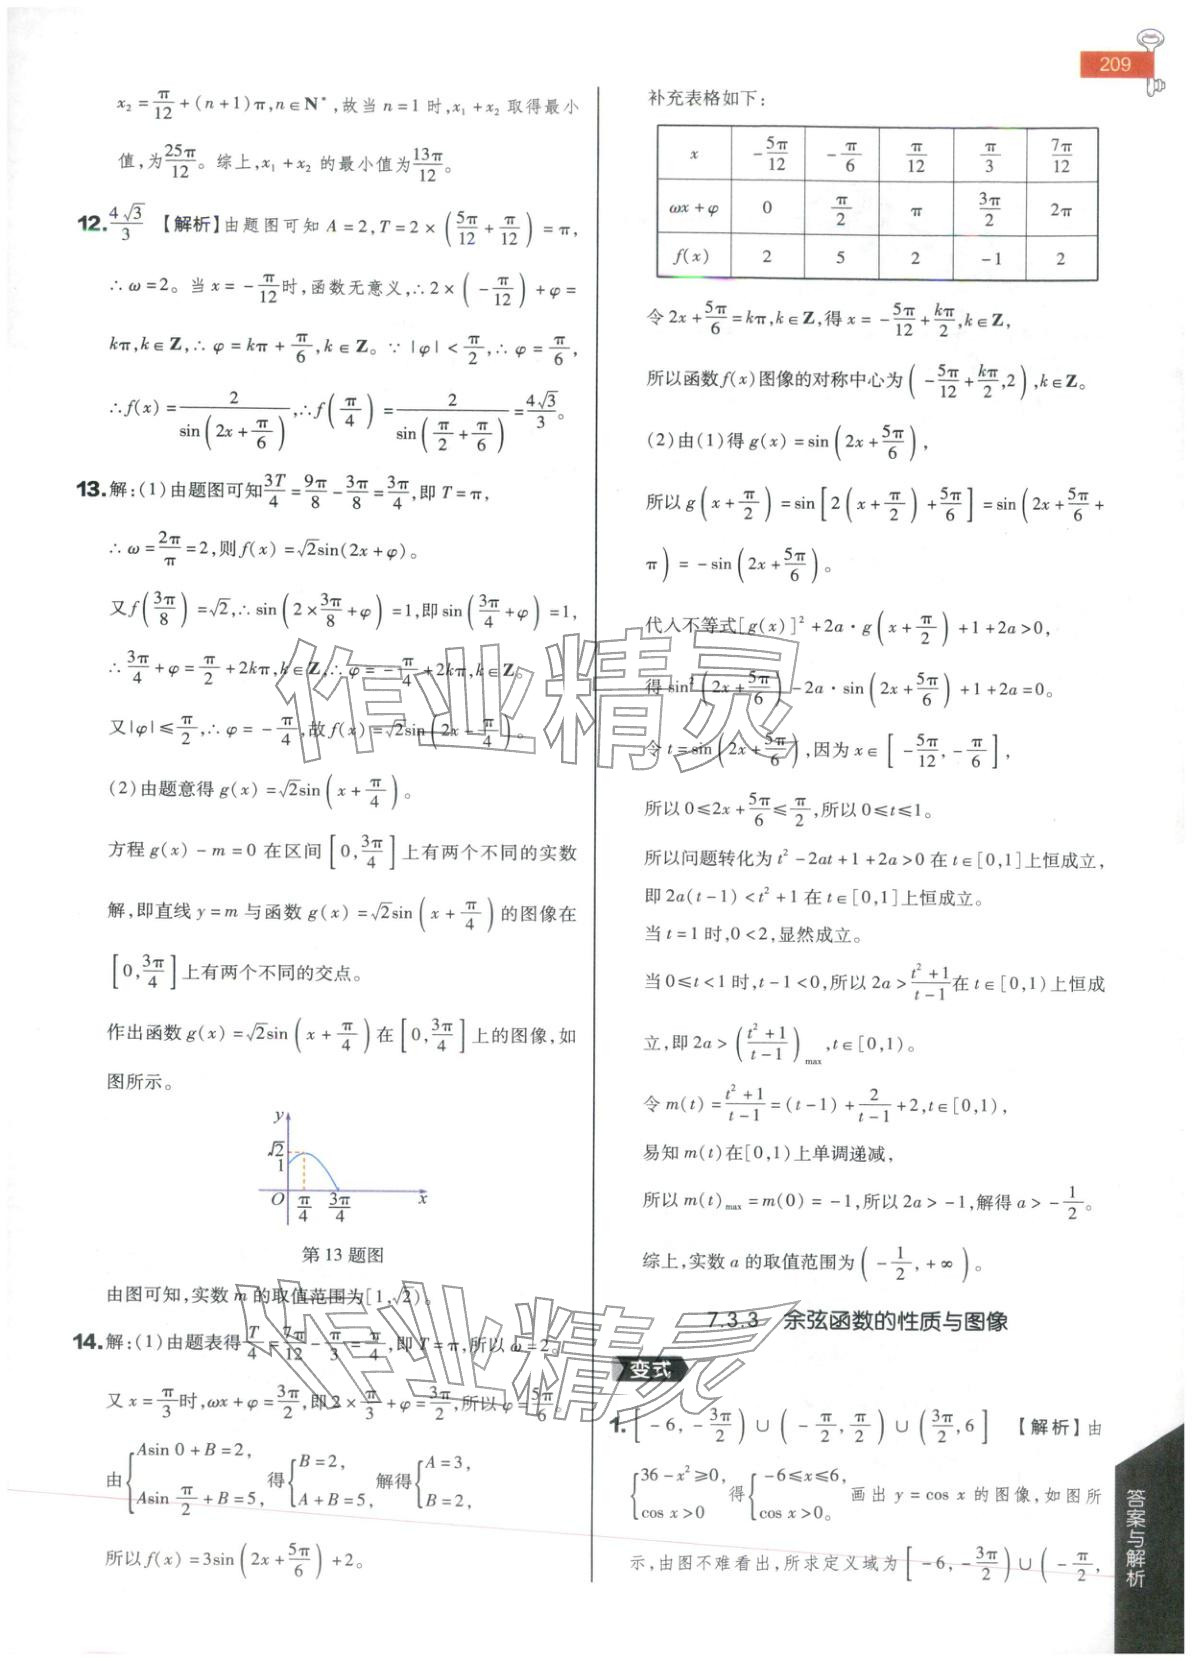 209
x₂=π/12+(n+1)π,n∈N*,故当 n=1 时,x₁+x₂ 取得最小
值,为25π/12。综上,x₁+x₂ 的最小值为13π/12。
12. 4√3/3 【解析】由题图可知 A=2,T=2×(5π/12+π/12)=π,
∴ω=2。当 x=-π/12时,函数无意义,∴2×(-π/12)+φ=
kπ,k∈Z,∴φ=kπ+π/6,k∈Z。∵|φ|<π/2,∴φ=π/6,
∴f(x)=2/sin(2x+π/6),∴f(π/4)=2/sin(π/2+π/6)=4√3/3。
13. 解:(1)由题图可知3T/4=9π/8-3π/8=3π/4,即 T=π,
∴ω=2π/π=2,则f(x)=√2sin(2x+φ)。
又f(3π/8)=√2,∴sin(2×3π/8+φ)=1,即sin(3π/4+φ)=1,
∴3π/4+φ=π/2+2kπ,k∈Z,∴φ=-π/4+2kπ,k∈Z。
又|φ|≤π/2,∴φ=-π/4,故f(x)=√2sin(2x-π/4)。
(2)由题意得 g(x)=√2sin(x+π/4)。
方程 g(x)-m=0 在区间[0,3π/4]上有两个不同的实数
解,即直线 y=m 与函数 g(x)=√2sin(x+π/4)的图像在
[0,3π/4]上有两个不同的交点。
作出函数 g(x)=√2sin(x+π/4)在[0,3π/4]上的图像,如
图所示。
y
√2
1
O π/4 3π/4 x
第 13 题图
由图可知,实数 m 的取值范围为[1,√2)。
14. 解:(1)由题表得T/4=7π/12-π/3=π/4,即 T=π,所以 ω=2。
又 x=π/3时,ωx+φ=3π/2,即2×π/3+φ=3π/2,所以φ=5π/6。
由{Asin 0+B=2, Asin π/2+B=5, 得{B=2, A+B=5, 解得{A=3, B=2,
所以f(x)=3sin(2x+5π/6)+2。
补充表格如下:
x -5π/12 -π/6 π/12 π/3 7π/12
ωx+φ 0 π/2 π 3π/2 2π
f(x) 2 5 2 -1 2
令2x+5π/6=kπ,k∈Z,得 x=-5π/12+kπ/2,k∈Z,
所以函数f(x)图像的对称中心为(-5π/12+kπ/2,2),k∈Z。
(2)由(1)得 g(x)=sin(2x+5π/6),
所以 g(x+π/2)=sin[2(x+π/2)+5π/6]=sin(2x+5π/6+
π)=-sin(2x+5π/6)。
代入不等式[g(x)]²+2a·g(x+π/2)+1+2a>0,
得sin²(2x+5π/6)-2a·sin(2x+5π/6)+1+2a=0。
令 t=sin(2x+5π/6),因为 x∈[-5π/12,-π/6],
所以0≤2x+5π/6≤π/2,所以0≤t≤1。
所以问题转化为 t²-2at+1+2a>0 在 t∈[0,1]上恒成立,
即 2a(t-1)<t²+1 在 t∈[0,1]上恒成立。
当 t=1 时,0<2,显然成立。
当0≤t<1时,t-1<0,所以 2a>t²+1/t-1在 t∈[0,1)上恒成
立,即 2a>(t²+1/t-1)max,t∈[0,1)。
令 m(t)=t²+1/t-1=(t-1)+2/t-1+2,t∈[0,1),
易知 m(t)在[0,1)上单调递减,
所以 m(t)max=m(0)=-1,所以 2a>-1,解得 a>-1/2。
综上,实数 a 的取值范围为(-1/2,+∞)。
7.3.3 余弦函数的性质与图像
变式
1. [-6,-3π/2)∪(-π/2,π/2)∪(3π/2,6] 【解析】由
{36-x²≥0, cos x>0 得{-6≤x≤6, cos x>0 画出 y=cos x 的图像,如图所
示,由图不难看出,所求定义域为[-6,-3π/2)∪(-π/2,
答案与解析
作业精灵
作业精灵